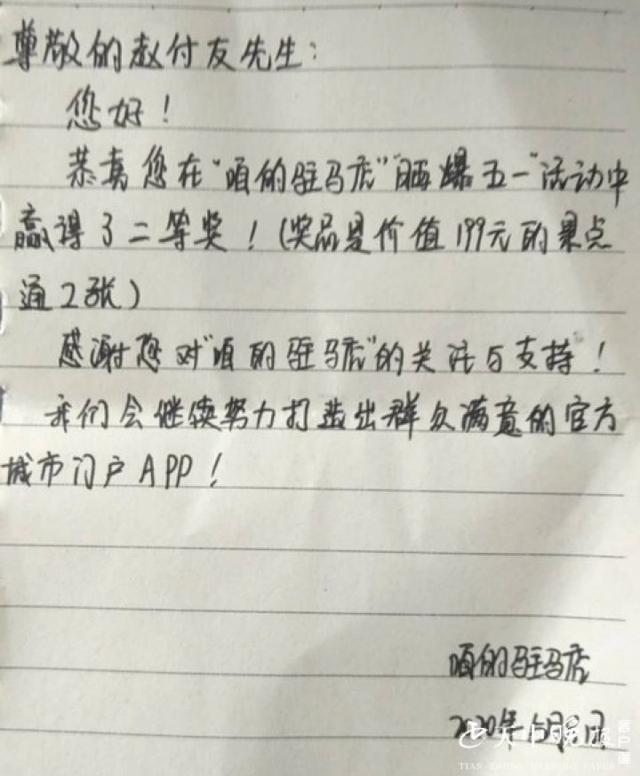 尊敬的赵付友先生：
您好！
恭喜您在“咱的驻马店”“晒爆五一”活动中
赢得了二等奖！（奖品是价值199元的景点
通2张）
感谢您对“咱的驻马店”的关注与支持！
我们会继续努力打造出群众满意的官方
城市门户APP！
咱的驻马店
2020年
天中晚报 客户端